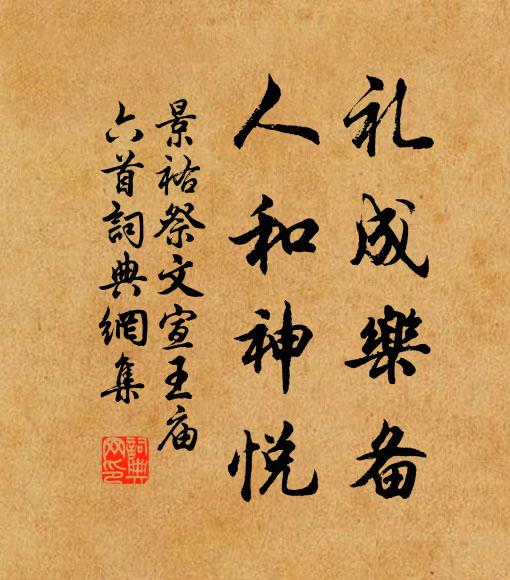 礼成樂备
人和神悦
景祐祭文宣王庙
六首詞典網集
詞典網印